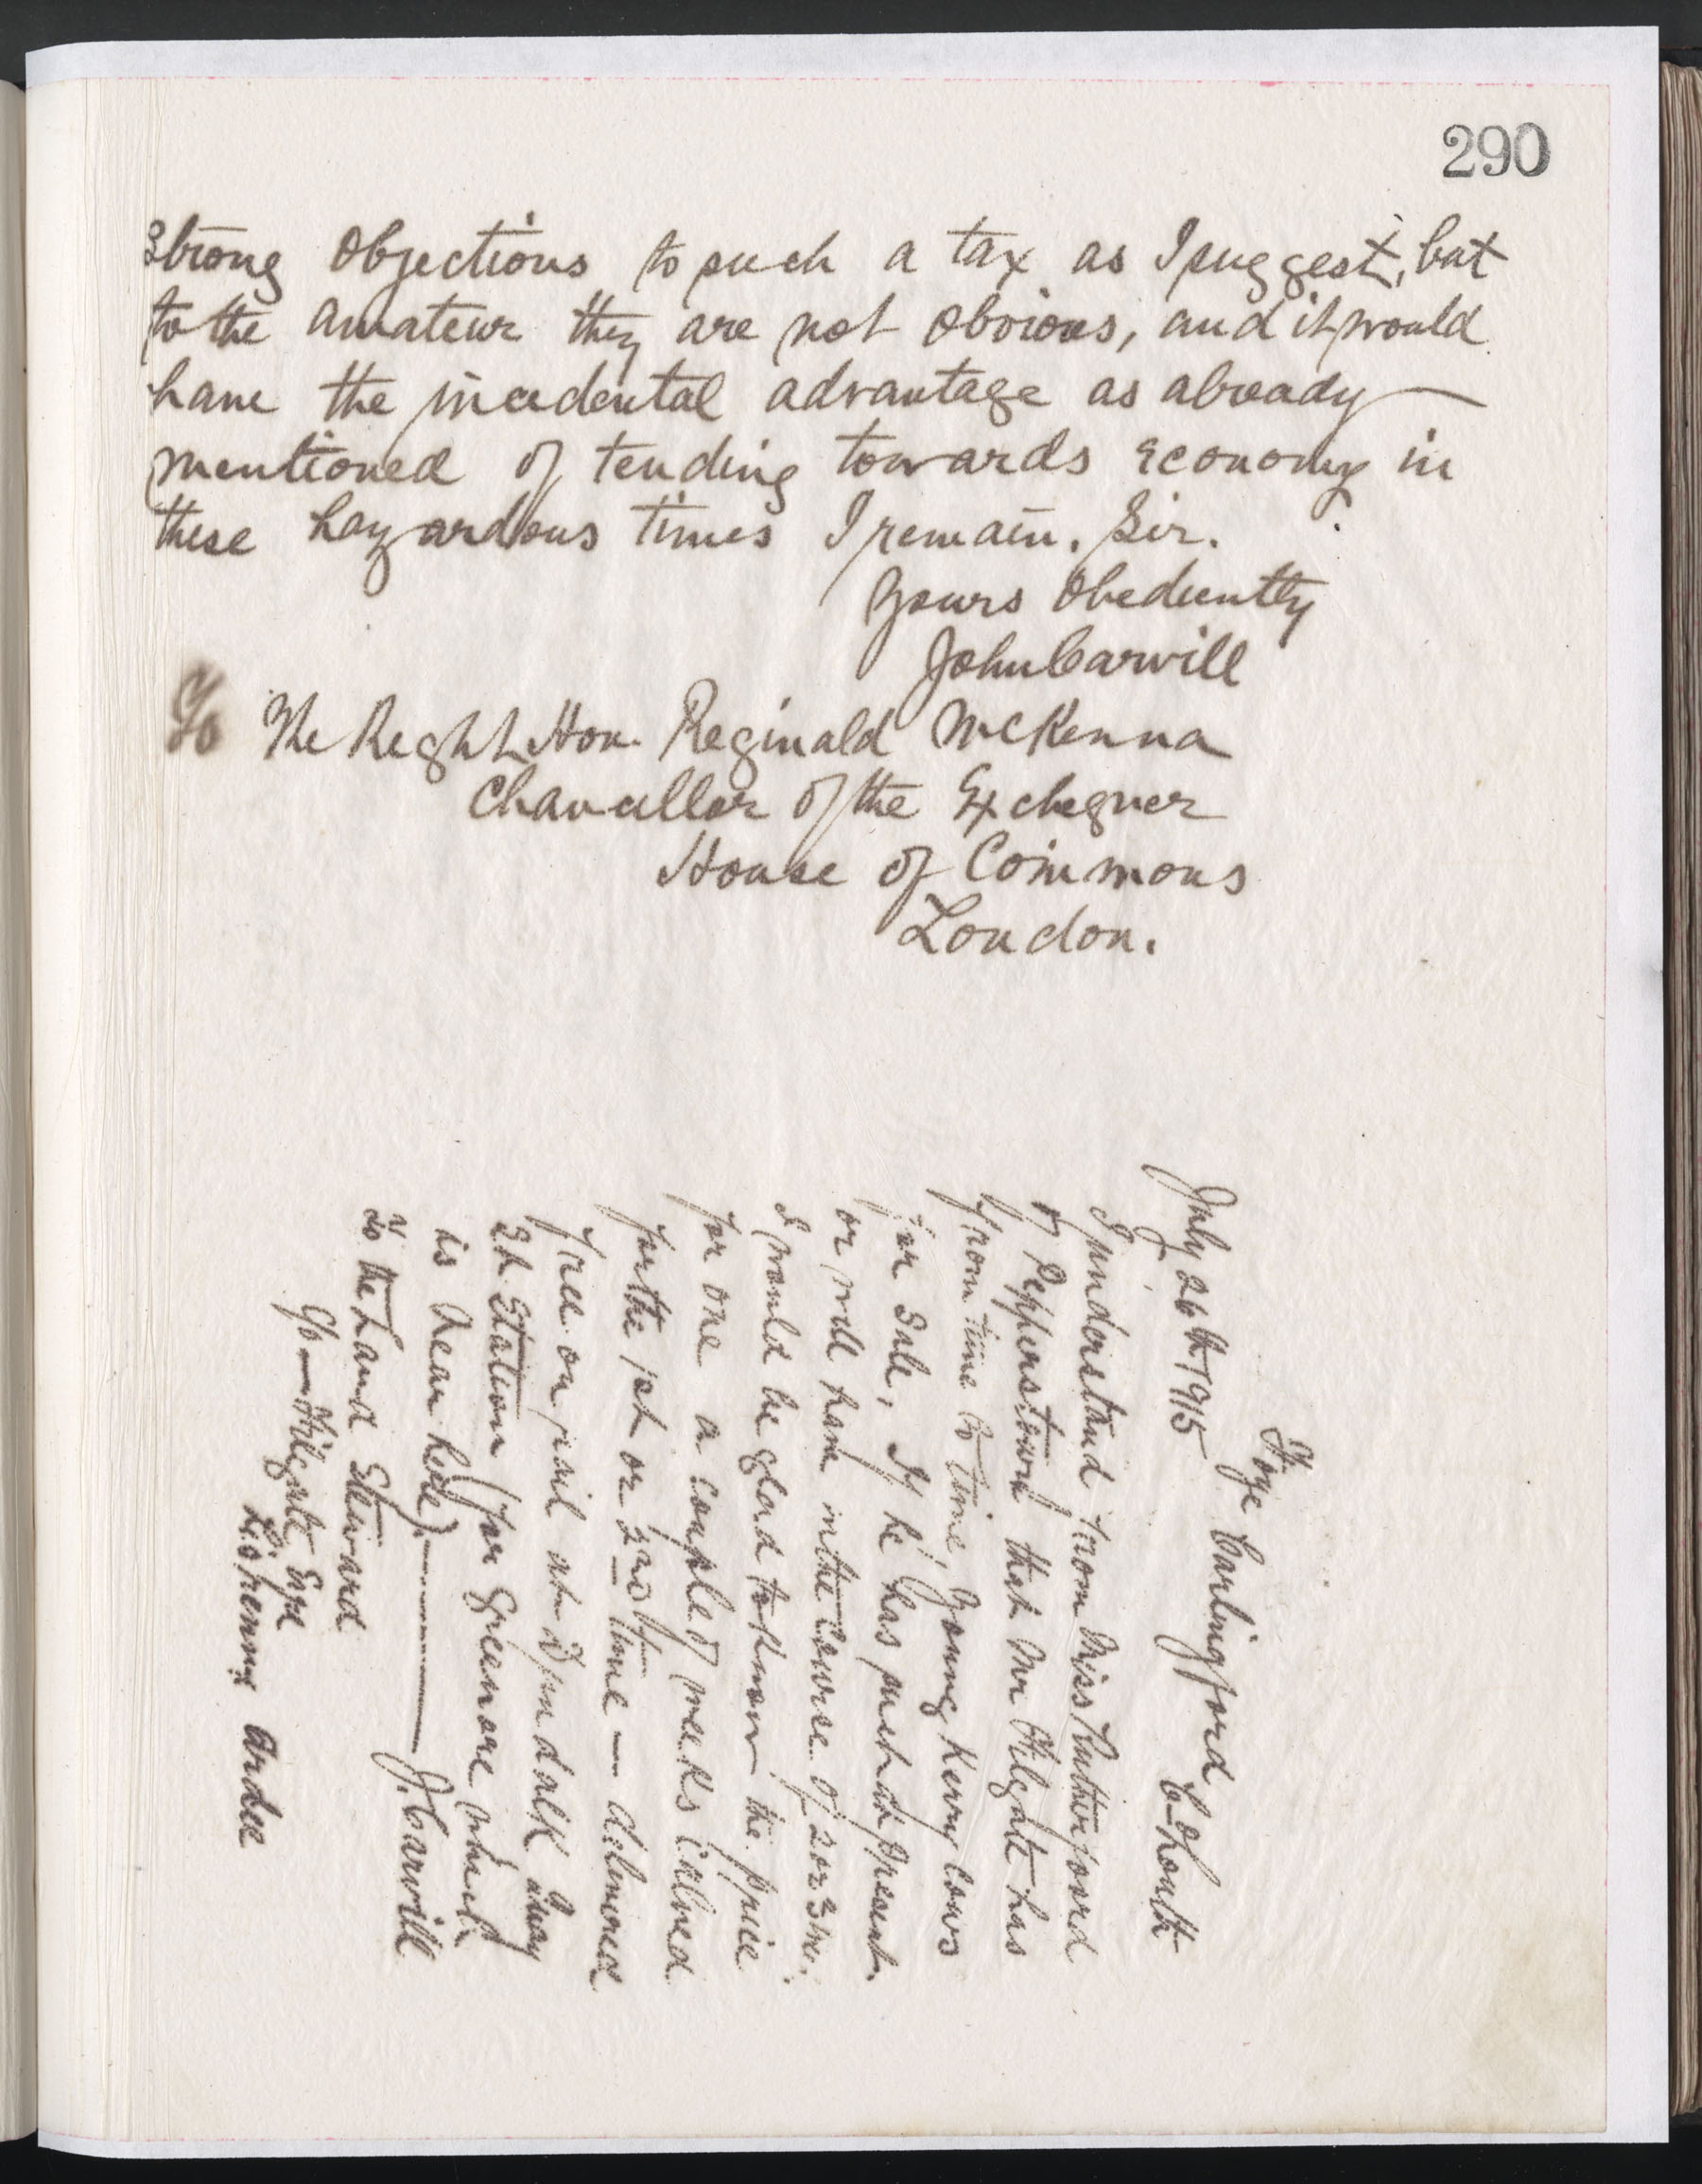 290
strong objections to such a tax as I suggest, but
to the amateur they are not obvious, and it would
have the incidental advantage as already —
mentioned of tending towards economy in
these hazardous times I remain. Sir.
Yours Obediently
John Carvill
To The Right Hon. Reginald McKenna
Chancellor of the Exchequer
House of Commons
London.
Carlingford
Co Louth
July 26th 1915
I understand from Miss Rutherfoord
of Pepperstown that Mr Filgate has
from time to time, young Kerry Cows
for Sale, If he has such at present.
or will have in the course of 2 or 3 mos.
I would be glad to know the price
for one a couple of weeks calved
for the 1st or 2nd time — delivered
free on rail at Dundalk
St. Station (for Greenore which
is near here). — J. Carvill
To the Land Steward
c/o — Filgate Esqe
Lisrenny Ardee